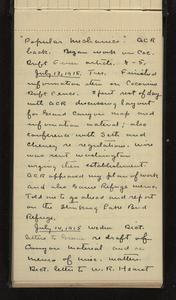 "Popular Mechanics" ACR
back. Began work on Pac.
article. 4-5.
July 13, 1915, Tues. Finished
information item on
Spent rest of day
with ACR discussing layout
for Grand Canyon map and
information material; also
conference with Seth and
Cheney re regulations. Wire
was sent Washington
urging their establishment
ACR approved my plan of work
and also Game Refuge memo.
Told me to go ahead and report
on the Stinking Lake Bird
Refuge.
July 14, 1915 Wednes. Dict.
letter to re draft of
Canyon material and re
memos of misc. matters.
Dict. letter to W. R. Hearst